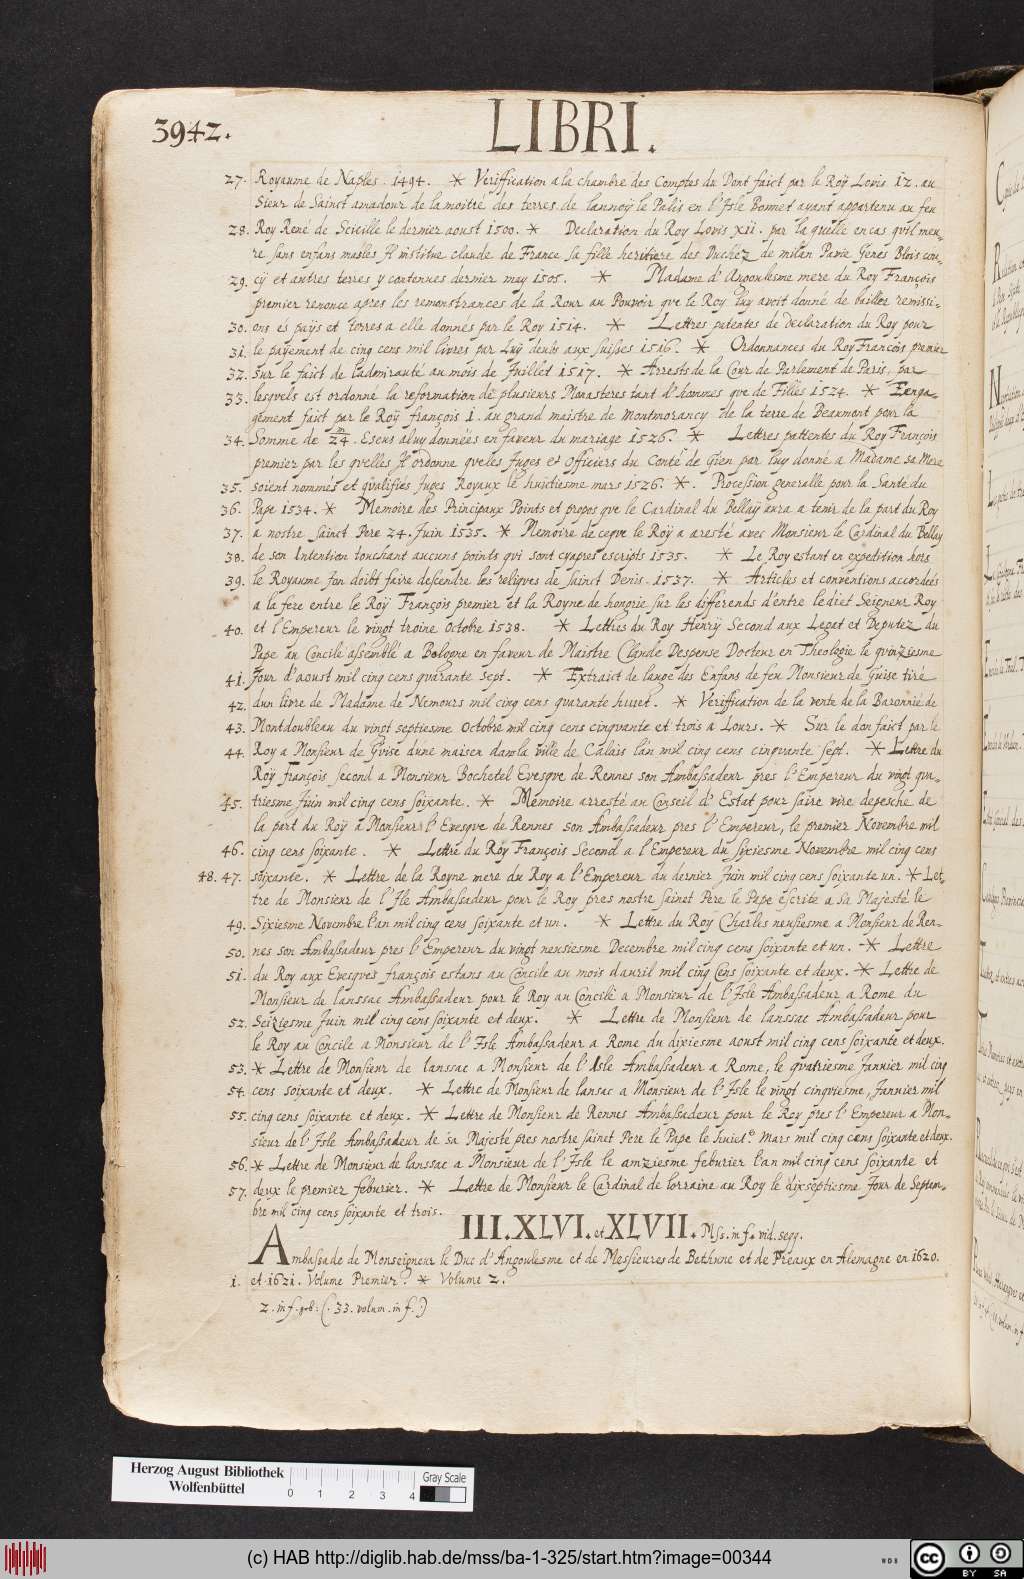 3942.
LIBRI.
27. Royaume de Naples. 1494. * Veriffication a la chambre des Comptes du Dont faict par le Roÿ Lovis 12. au
Sieur de Sainct amadour de la moitié des terres de lannoÿ le Palis en l'Isle Bonnet ayant appartenu au feu
28. Roy René de Sicille le dernier aoust 1500. * Declaration du Roy Lovis xii. par la quelle en cas qvil meu-
re sans enfans masles Il institue claude de France sa fille heritiere des Duchéz de milan Pavie Genes Blois cou-
29. cÿ et autres terres y contenues dernier may 1505. * Madame d'Angoulesme mere du Roy François
premier renonce apres les remonstrances de la Rour au Pouvoir qve le Roy luy avoit donné de bailler remissi-
30. ons es paÿs et terres a elle donnés par le Roy 1514. * Lettres patentes de declaration du Roy pour
31. le payement de cinq cens mil livres par Luÿ deubs aux suisses 1516. * Ordonnances du Roy François premier
32. sur le faict de ladmirauté au mois de Juillet 1517. * Arrests de la Cour de Parlement de Paris, par
33. lesquels est ordonné la reformation de plusieurs Monasteres tant d'hommes qve de Filles 1524. * Eenga-
gement faict par le Roÿ françois 1. au grand maistre de Montmorancy de la terre de Beaumont pour la
34. Somme de 24.m Escus a luy données en faveur du mariage 1526. * Lettres pattentes du Roy François
premier par les qvelles Il ordonne qveles Juges et Officiers du Conté de Gien par luy donné a Madame sa Mere
35. soient nommés et qvalifiés Juges Royaux le huictiesme mars 1526. * . Procession generalle pour la Santé du
36. Pape 1534. * Memoire des Principaux Points et propos qve le Cardinal du Bellaÿ aura a tenir de la part du Roy
37. a nostre Sainct Pere 24. Juin 1535. * Memoire de ceqve le Roÿ a aresté avec Monsieur le Cardinal du Bellay
38. de son Intention touchant aucuns points qvi sont cyapres escripts 1535. * Le Roy estant en expedition hors
39. le Royaume son doibt faire descendre les reliqves de sainct Denis. 1537. * Articles et conventions accordées
a la fere entre le Roÿ François premier et la Royne de hongrie sur les differends d'entre lediet Seigneur Roy
40. et l'Empereur le vingt troine Octobre 1538. * Lettres du Roy Henrÿ Second aux Legat et Deputez du
Pape au Concile assemblé a Bologne en faveur de Maistre Claude Despense Docteur en Theologie le qvinziesme
41. Jour d'aoust mil cinq cens qvarante sept. * Extraict de lauge des Enfans de feu Monsieur de Guise tiré
42. dun livre de Madame de Nemours mil cinq cens qvarante huict. * Veriffication de la vente de la Baronnié de
43. Montdoubleau du vingt septiesme Octobre mil cinq cens cinqvante et trois a Lours. * Sur le don faict par le
44. Roy a Monsieur de Gvise d'une maison dans la ville de Calais l'an mil cinq cens cinqvante sept. * Lettre du
Roÿ françois second a Monsieur Bochetel Evesqve de Rennes son Ambassadeur pres l'Empereur du vingt qva-
45. triesme Juin mil cinq cens soixante. * Memoire arresté au Conseil d'Estat pour faire vire depesche de
la part du Roÿ a Monsieur l'Evesqve de Rennes son Ambassadeur pres l'Empereur, le premier Novembre mil
46. cinq cens soixante. * Lettre du Roÿ François Second a l'Empereur du sixiesme Novembre mil cinq cens
48. 47. soixante. * Lettre de la Royne mere du Roy a l'Empereur du dernier Juin mil cinq cens soixante un. * Let-
tre de Monsieur de l'Ile Ambassadeur pour le Roy pres nostre sainct Pere le Pape Escrite a sa Majesté le
49. Sixiesme Novembre l'an mil cinq cens soixante et un. * Lettre du Roy Charles neufiesme a Monsieur de Ren-
50. nes son Ambassadeur pres l'Empereur du vingt neufiesme Decembre mil cinq cens soixante et un. * Lettre
51. du Roy aux Evesqves françois estans au Concile au mois d'auril mil cinq Cens soixante et deux. * Lettre de
Monsieur de lanssac Ambassadeur pour le Roy au Concile a Monsieur de l'Isle Ambassadeur a Rome du
52. Seiziesme Juin mil cinq cens soixante et deux. * Lettre de Monsieur de lanssac Ambassadeur pour
le Roy au Concile a Monsieur de l'Isle Ambassadeur a Rome du dixiesme aoust mil cinq cens soixante et deux.
53. * Lettre de Monsieur de lanssac a Monsieur de l'Isle Ambassadeur a Rome, le qvatriesme Janvier mil cinq
54. cens soixante et deux. * Lettre de Monsieur de lansac a Monsieur de l'Isle le vingt cinqviesme, Janvier mil
55. cinq cens soixante et deux. * Lettre de Monsieur de Rennes Ambassadeur pour le Roy pres l'Empereur a Mon-
sieur de l'Isle Ambassadeur de sa Majesté pres nostre sainct Pere le Pape le huict.e Mars mil cinq cens soixante et deux.
56. * Lettre de Monsieur de lanssac a Monsieur de l'Isle le onziesme feburier l'an mil cinq cens soixante et
57. deux le premier feburier. * Lettre de Monsieur le Cardinal de lorraine au Roy le dixseptiesme Jour de Septem-
bre mil cinq cens soixante et trois.
III. XLVI. et XLVII. Mss. in f. vid. seqq.
Ambassade de Monseigneur le Duc d'Angoulesme et de Messieures de Bethune et de Preaux en Alemagne en 1620.
1. et 1621. Volume Premier. * Volume 2.
2. in f. (. 33. volum. in f. .)
Herzog August Bibliothek
Wolfenbüttel
0 1 2 3 4
Gray Scale
(c) HAB http://diglib.hab.de/mss/ba-1-325/start.htm?image=00344
WDB
cc BY SA